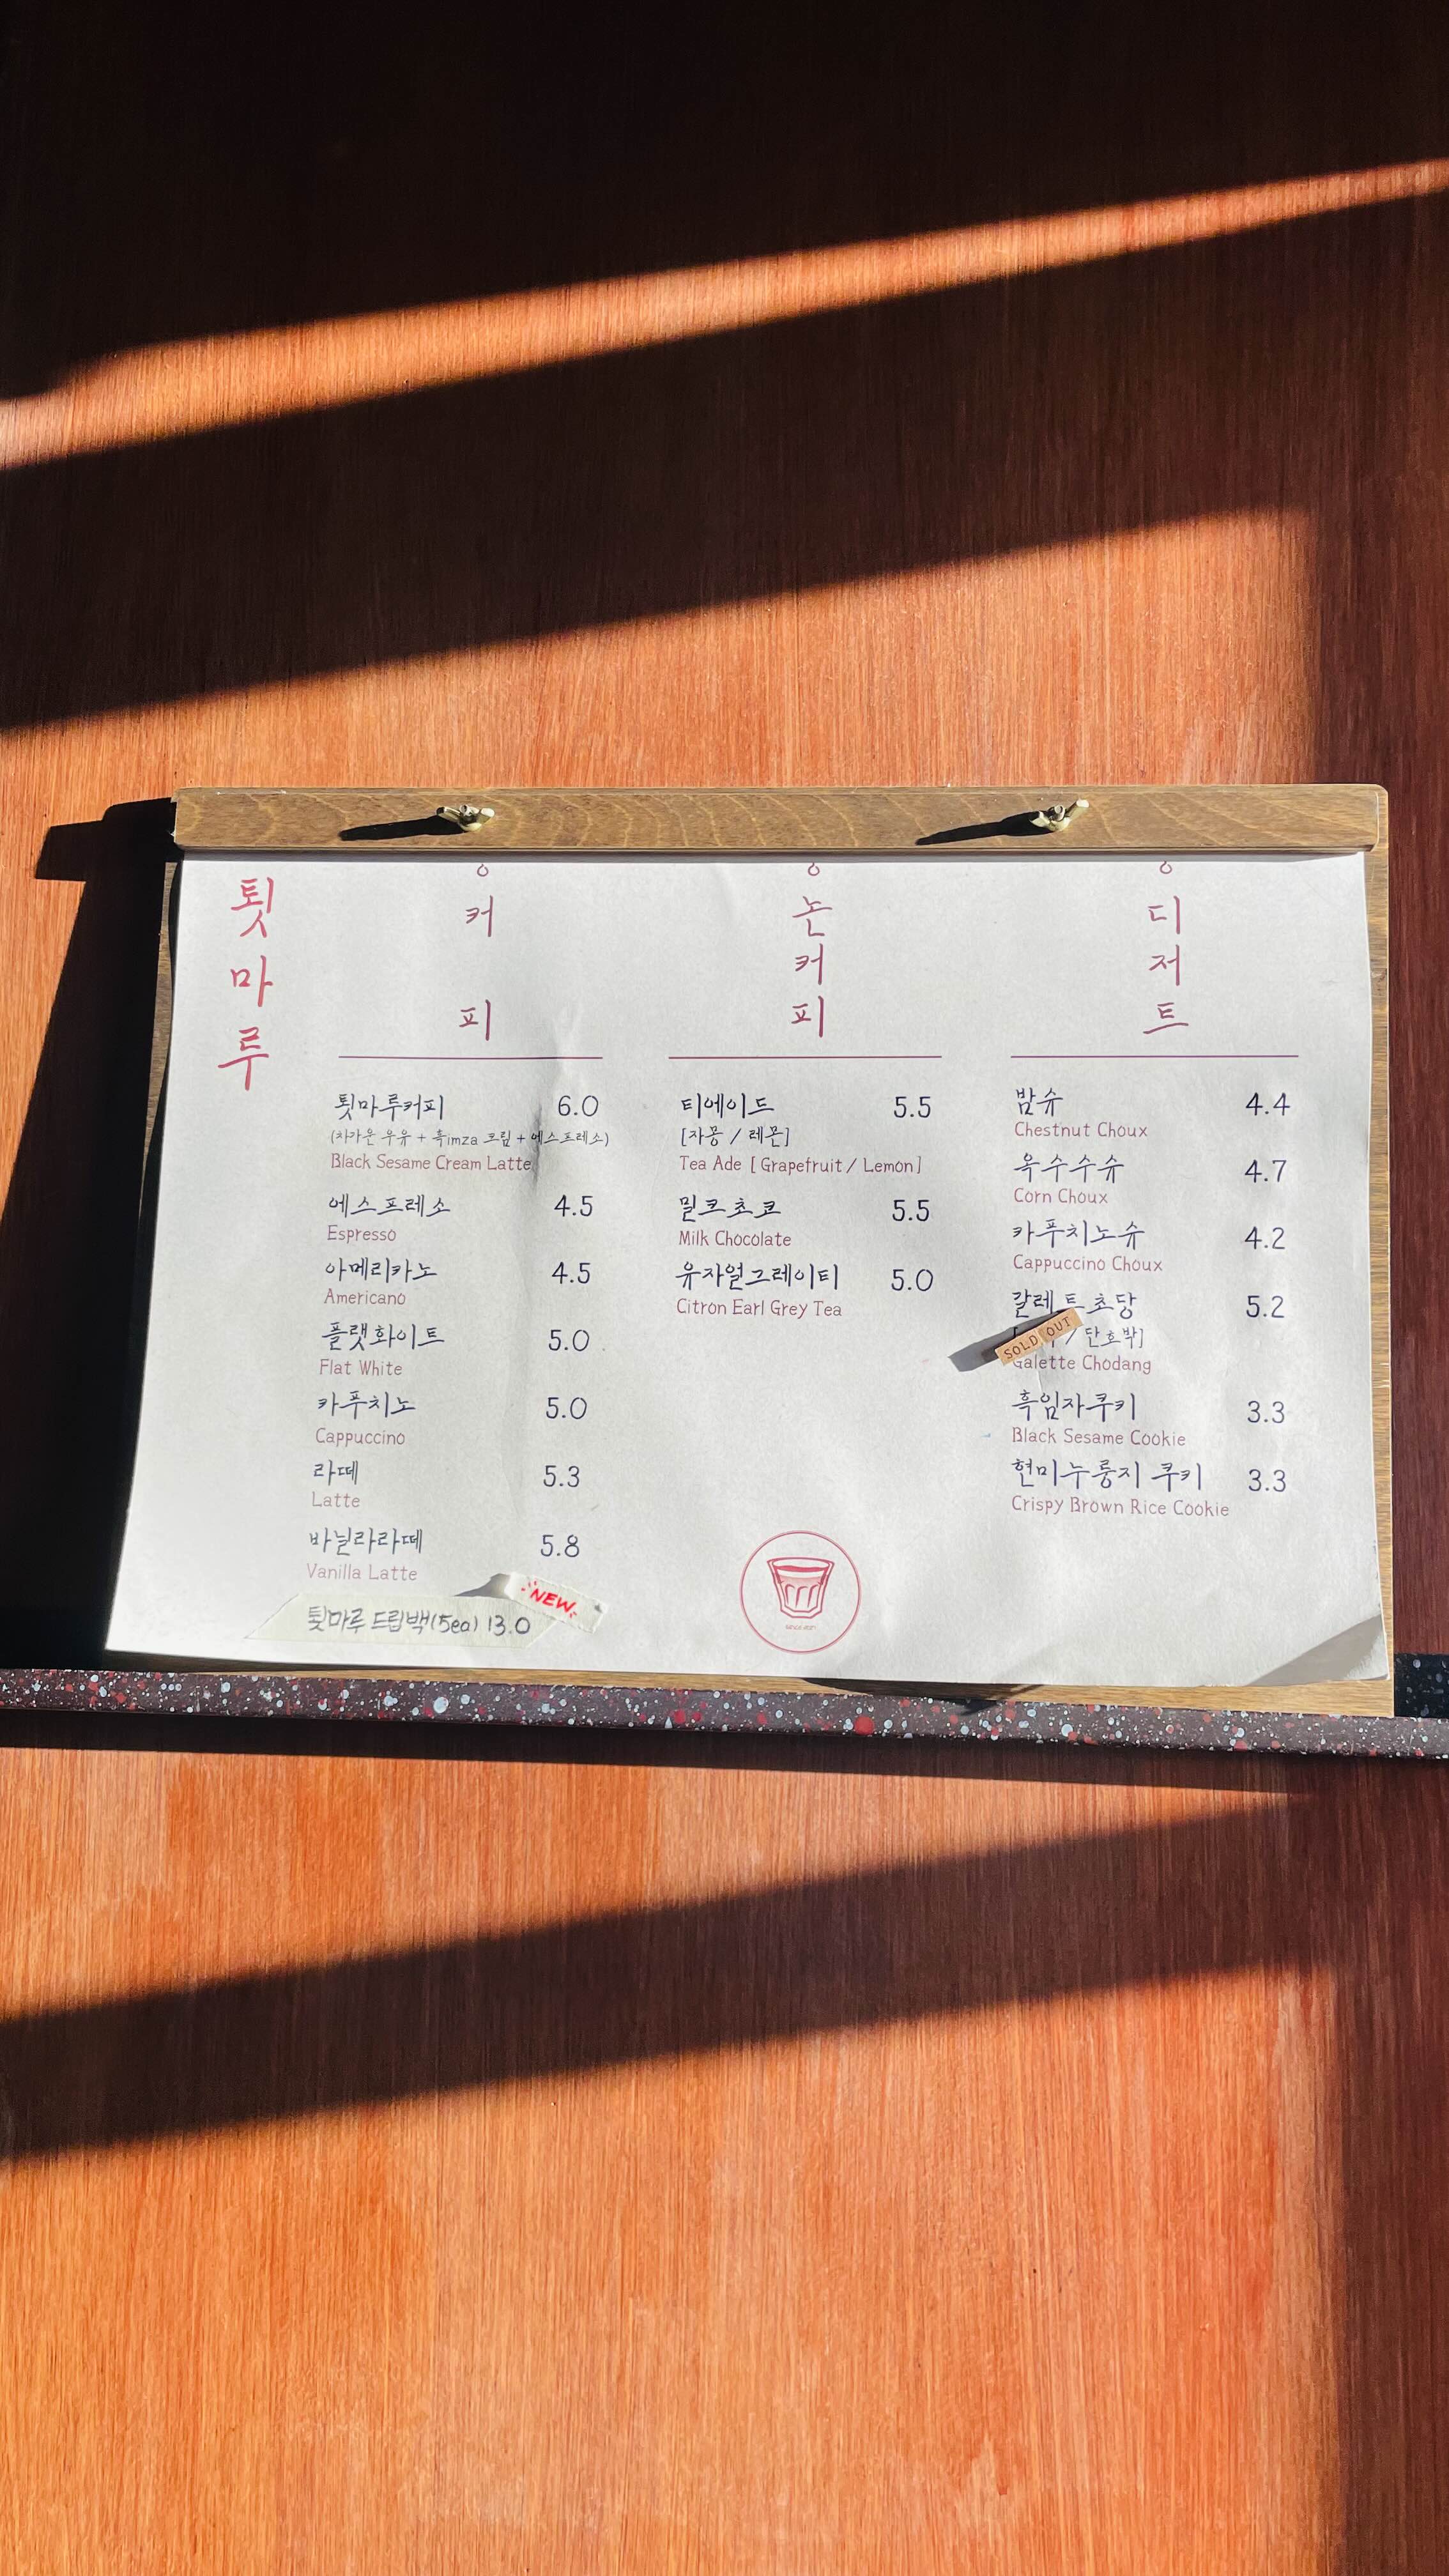 툇
마
루
커
피
툇마루커피 6.0
(차가운 우유 + 흑imza 크림 + 에스프레소)
Black Sesame Cream Latte
에스프레소 4.5
Espresso
아메리카노 4.5
Americano
플랫화이트 5.0
Flat White
카푸치노 5.0
Cappuccino
라떼 5.3
Latte
바닐라라떼 5.8
Vanilla Latte
NEW
툇마루 드립백(5ea) 13.0
논
커
피
티에이드 5.5
[자몽 / 레몬]
Tea Ade [Grapefruit / Lemon]
밀크초코 5.5
Milk Chocolate
유자얼그레이티 5.0
Citron Earl Grey Tea
디
저
트
밤슈 4.4
Chestnut Choux
옥수수슈 4.7
Corn Choux
카푸치노슈 4.2
Cappuccino Choux
갈레트초당 5.2
/ 단호박]
SOLD OUT
Galette Chodang
흑임자쿠키 3.3
Black Sesame Cookie
현미누룽지 쿠키 3.3
Crispy Brown Rice Cookie